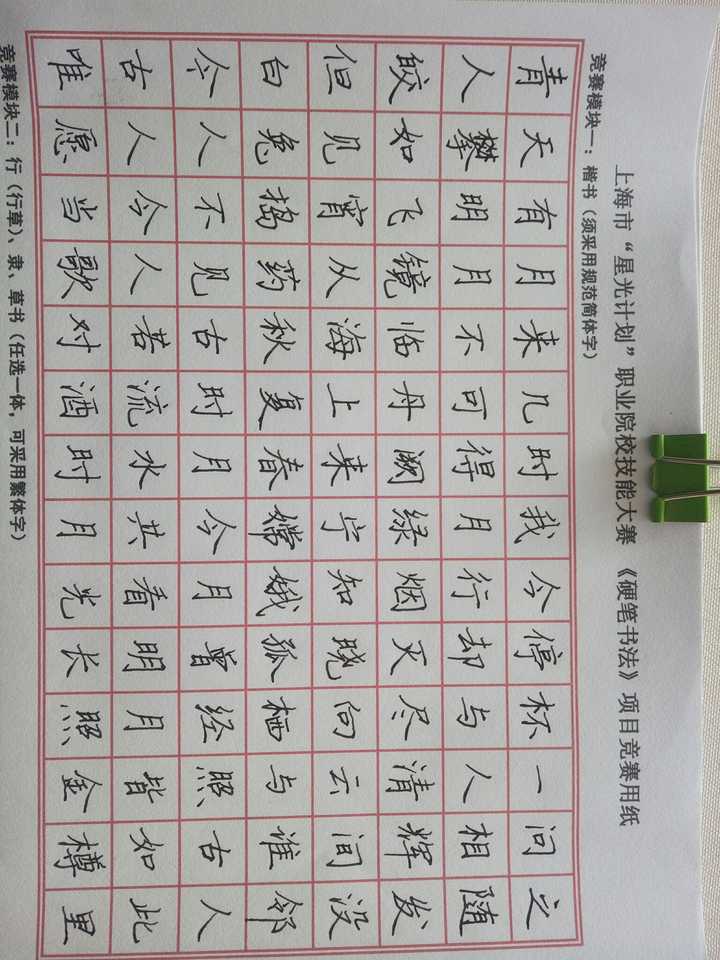 上海市“星光计划”职业院校技能大赛 《硬笔书法》项目竞赛用纸
竞赛模块一：楷书（须采用规范简体字）
青天有月来几时我今停杯一问之
人攀明月不可得月行却与人相随
皎如飞镜临丹阙绿烟灭尽清辉发
但见宵从海上来宁知晓向云间没
白兔捣药秋复春嫦娥孤栖与谁邻
今人不见古时月今月曾经照古人
古人今人若流水共看明月皆如此
唯愿当歌对酒时月光长照金樽里
竞赛模块二：行（行草）、隶、草书（任选一体，可采用繁体字）